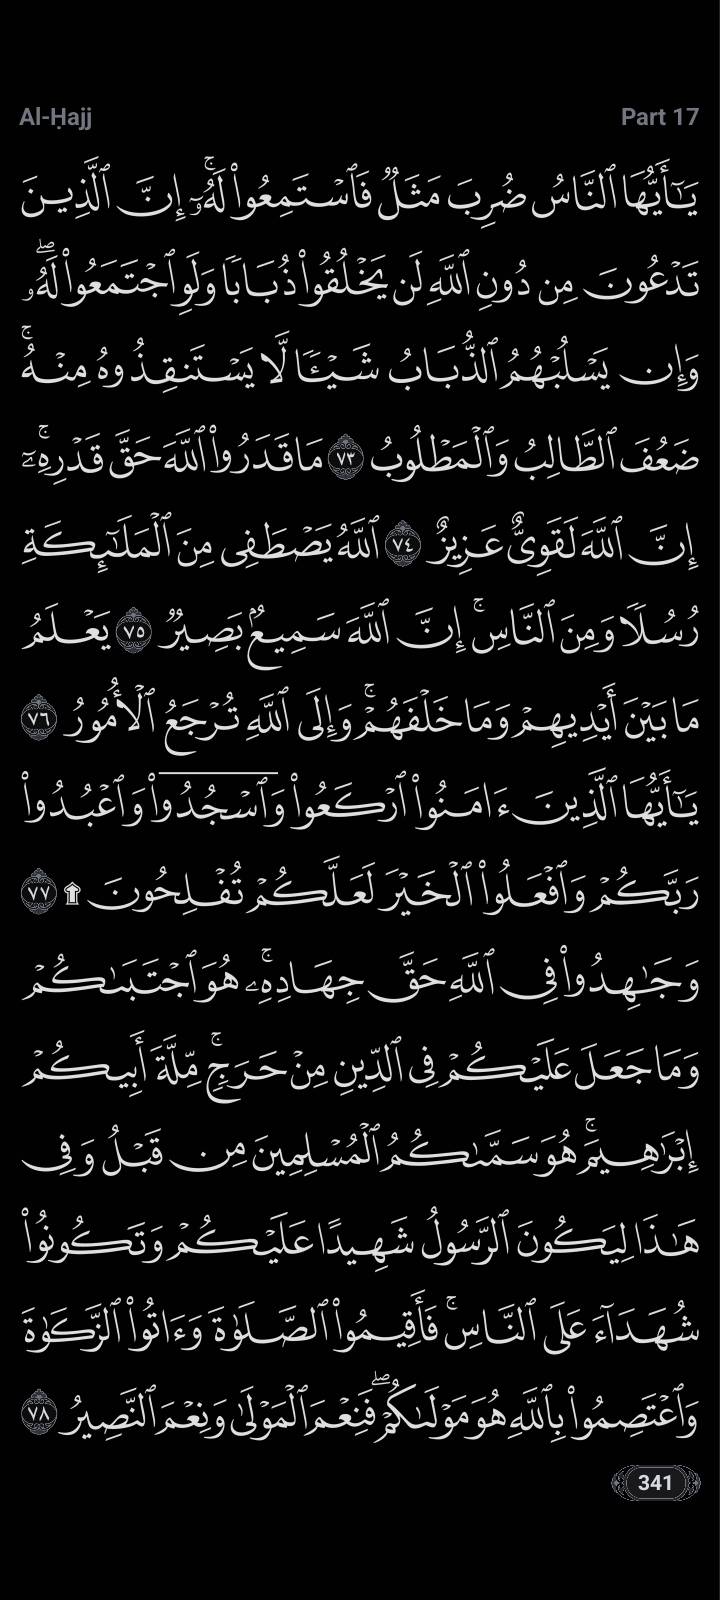 Al-Ḥajj
Part 17
يَـٰٓأَيُّهَا ٱلنَّاسُ ضُرِبَ مَثَلٌ فَٱسْتَمِعُوا۟ لَهُۥٓ ۚ إِنَّ ٱلَّذِينَ
تَدْعُونَ مِن دُونِ ٱللَّهِ لَن يَخْلُقُوا۟ ذُبَابًا وَلَوِ ٱجْتَمَعُوا۟ لَهُۥ ۖ
وَإِن يَسْلُبْهُمُ ٱلذُّبَابُ شَيْـًٔا لَّا يَسْتَنقِذُوهُ مِنْهُ ۚ
ضَعُفَ ٱلطَّالِبُ وَٱلْمَطْلُوبُ ٧٣ مَا قَدَرُوا۟ ٱللَّهَ حَقَّ قَدْرِهِۦٓ ۚ
إِنَّ ٱللَّهَ لَقَوِىٌّ عَزِيزٌ ٧٤ ٱللَّهُ يَصْطَفِى مِنَ ٱلْمَلَـٰٓئِكَةِ
رُسُلًا وَمِنَ ٱلنَّاسِ ۚ إِنَّ ٱللَّهَ سَمِيعٌۢ بَصِيرٌ ٧٥ يَعْلَمُ
مَا بَيْنَ أَيْدِيهِمْ وَمَا خَلْفَهُمْ ۗ وَإِلَى ٱللَّهِ تُرْجَعُ ٱلْأُمُورُ ٧٦
يَـٰٓأَيُّهَا ٱلَّذِينَ ءَامَنُوا۟ ٱرْكَعُوا۟ وَٱسْجُدُوا۟ وَٱعْبُدُوا۟
رَبَّكُمْ وَٱفْعَلُوا۟ ٱلْخَيْرَ لَعَلَّكُمْ تُفْلِحُونَ ۩ ٧٧
وَجَـٰهِدُوا۟ فِى ٱللَّهِ حَقَّ جِهَادِهِۦ ۚ هُوَ ٱجْتَبَىٰكُمْ
وَمَا جَعَلَ عَلَيْكُمْ فِى ٱلدِّينِ مِنْ حَرَجٍ ۚ مِّلَّةَ أَبِيكُمْ
إِبْرَٰهِيمَ ۚ هُوَ سَمَّىٰكُمُ ٱلْمُسْلِمِينَ مِن قَبْلُ وَفِى
هَـٰذَا لِيَكُونَ ٱلرَّسُولُ شَهِيدًا عَلَيْكُمْ وَتَكُونُوا۟
شُهَدَآءَ عَلَى ٱلنَّاسِ ۚ فَأَقِيمُوا۟ ٱلصَّلَوٰةَ وَءَاتُوا۟ ٱلزَّكَوٰةَ
وَٱعْتَصِمُوا۟ بِٱللَّهِ هُوَ مَوْلَىٰكُمْ ۖ فَنِعْمَ ٱلْمَوْلَىٰ وَنِعْمَ ٱلنَّصِيرُ ٧٨
341